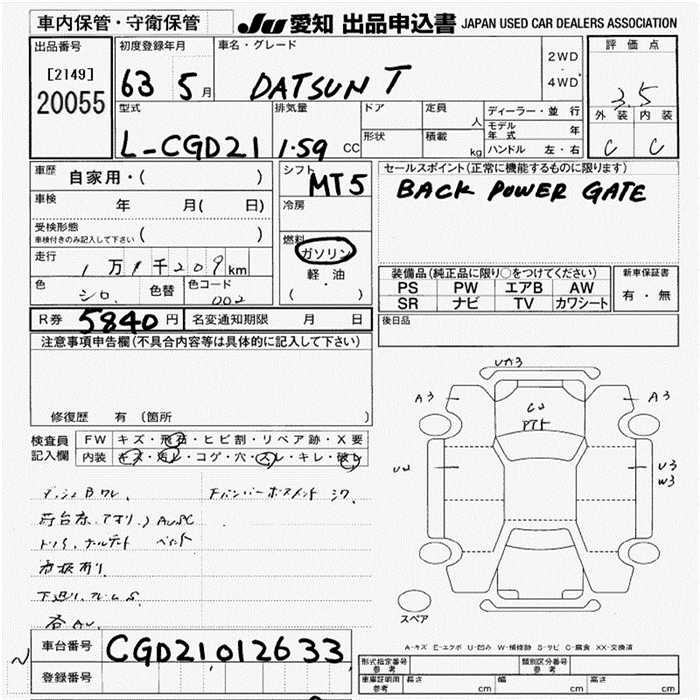 車内保管・守衛保管
JU 愛知 出品申込書 JAPAN USED CAR DEALERS ASSOCIATION
出品番号
[2149]
20055
初度登録年月
63 5月
車名・グレード
DATSUN T
2WD
・
4WD
評価点
3.5
外装 内装
C C
型式
L-CGD21
排気量
1.59 CC
ドア
形状
定員
人
積載
kg
ディーラー・並行
モデル年式 年
ハンドル 左・右
車歴
自家用・( )
車検
年 月( 日)
受検形態
車検付きのみ記入して下さい ( )
走行
1万9千209km
色
シロ
色替
色コード
002
シフト
MT5
冷房
燃料
ガソリン
軽・油
( ・ )
セールスポイント(正常に機能するものに限ります)
BACK POWER GATE
装備品(純正品に限り○をつけてください)
PS PW エアB AW
SR ナビ TV カワシート
新車保証書
有・無
R券 5840円
名変通知期限 月 日
後日品
注意事項申告欄(不具合内容等は具体的に記入して下さい)
修復歴 有(箇所 )
検査員
記入欄
FW キズ・飛石・ヒビ割・リペア跡・X要
内装 キズ・汚レ・コゲ・穴・スレ・キレ・破レ
A3
A3
U3
W3
スペア
A-キズ E-エクボ U-凹み W-補修跡 S-サビ C-腐食 XX-交換済
車台番号
CGD21012633
登録番号
形式指定番号
参考
類別区分番号
参考
車庫証明用
参考
長さ cm 幅 cm 高さ cm